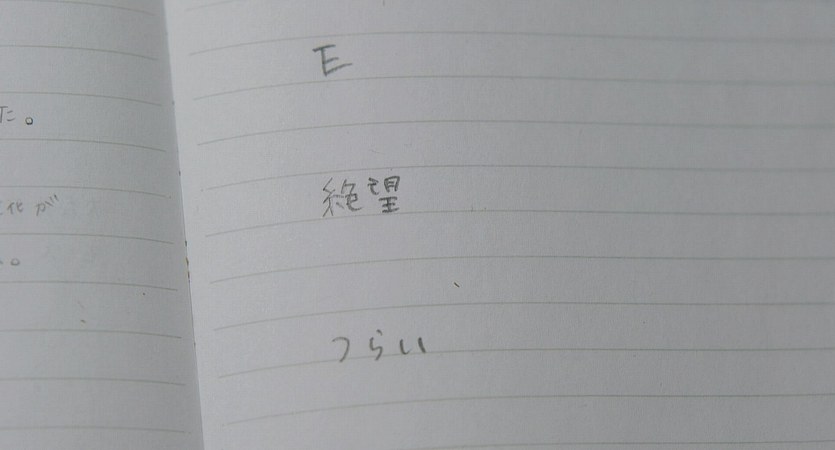 た。
化が
。
E
絶望
つらい